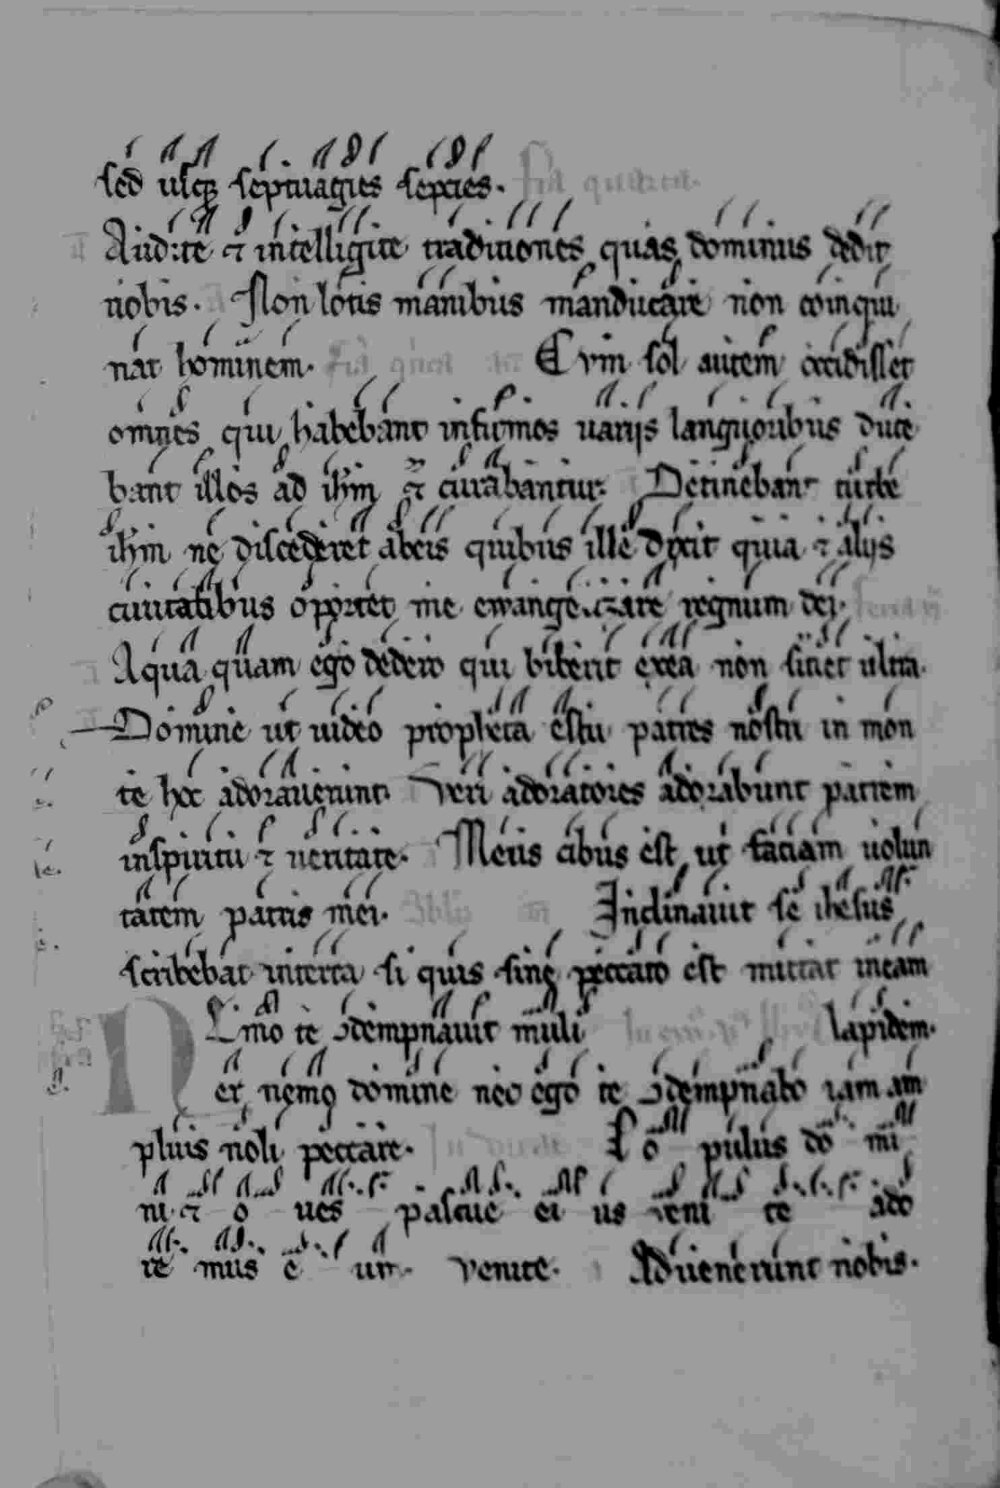 sed usq septuagies septies. fia quarta.
Audite ⁊ intelligite traditiones quas dominus dedit
nobis. Non lotis manibus manducare non coinqui
nat hominem. fia Cum sol autem occidisset
omnes qui habebant infirmos uariis languoribus duce
bant illos ad ihm ⁊ curabantur. Detinebant turbe
ihm ne discederet abeis quibus ille dixit quia ⁊ aliis
ciuitatibus oportet me ewangelizare regnum dei.
Aqua quam ego dedero qui biberit exea non sitiet ultra.
Domine ut uideo propheta estu patres nostri in mon
te hoc adorauerunt Veri adoratores adorabunt patrem
inspiritu ⁊ ueritate. Meus cibus est ut faciam uolun
tatem patris mei. Inclinauit se ihesus
scribebat interra si quis sine peccato est mittat ineam
Nemo te ꝯdempnauit muli lapidem.
er nemo domine nec ego te ꝯdempnabo iam am
plius noli peccare. Po pulus do mi
ni ⁊ o ues pascue ei us veni te ado
re mus e um. venite. Aduenerunt nobis.